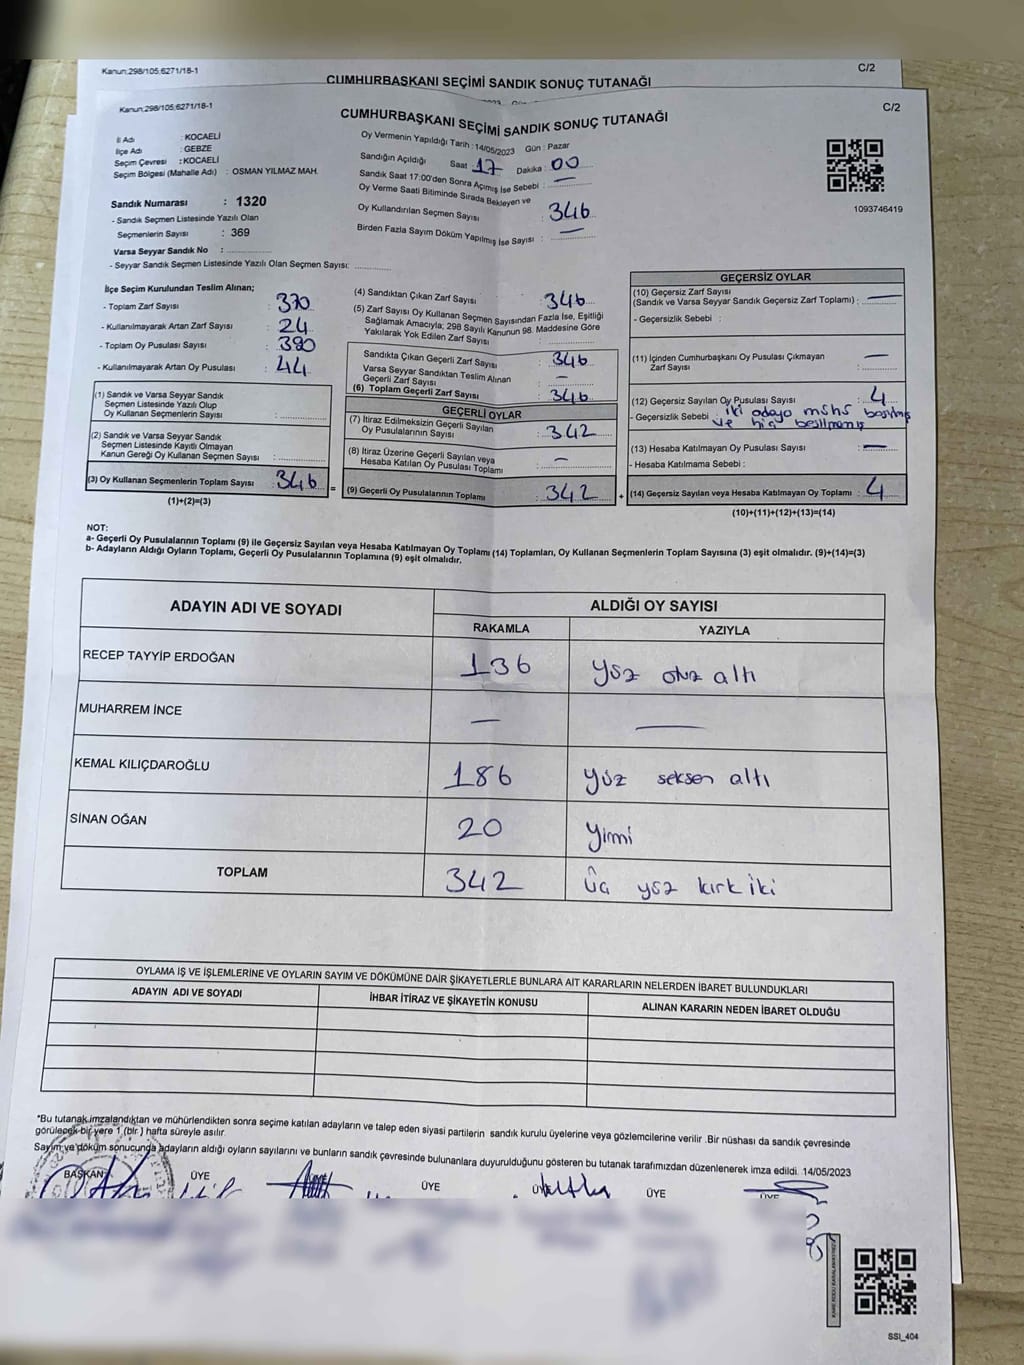 Kanun:298/105;6271/18-1
C/2
CUMHURBAŞKANI SEÇİMİ SANDIK SONUÇ TUTANAĞI
Kanun:298/105;6271/18-1
C/2
CUMHURBAŞKANI SEÇİMİ SANDIK SONUÇ TUTANAĞI
İl Adı : KOCAELİ
İlçe Adı : GEBZE
Seçim Çevresi : KOCAELİ
Seçim Bölgesi (Mahalle Adı) : OSMAN YILMAZ MAH.
Sandık Numarası : 1320
- Sandık Seçmen Listesinde Yazılı Olan
Seçmenlerin Sayısı : 369
Varsa Seyyar Sandık No : ............
- Seyyar Sandık Seçmen Listesinde Yazılı Olan Seçmen Sayısı: ............
Oy Vermenin Yapıldığı Tarih : 14/05/2023 Gün : Pazar
Sandığın Açıldığı Saat : 17 Dakika : 00
Sandık Saat 17:00'den Sonra Açımış İse Sebebi : —
Oy Verme Saati Bitiminde Sırada Bekleyen ve
Oy Kullandırılan Seçmen Sayısı : 346
Birden Fazla Sayım Döküm Yapılmış İse Sayısı : —
1093746419
İlçe Seçim Kurulundan Teslim Alınan;
- Toplam Zarf Sayısı : 370
- Kullanılmayarak Artan Zarf Sayısı : 24
- Toplam Oy Pusulası Sayısı : 390
- Kullanılmayarak Artan Oy Pusulası : 44
(1) Sandık ve Varsa Seyyar Sandık
Seçmen Listesinde Yazılı Olup
Oy Kullanan Seçmenlerin Sayısı : ............
(2) Sandık ve Varsa Seyyar Sandık
Seçmen Listesinde Kayıtlı Olmayan
Kanun Gereği Oy Kullanan Seçmen Sayısı : ............
(3) Oy Kullanan Seçmenlerin Toplam Sayısı : 346 =
(1)+(2)=(3)
(4) Sandıktan Çıkan Zarf Sayısı : 346
(5) Zarf Sayısı Oy Kullanan Seçmen Sayısından Fazla İse, Eşitliği
Sağlamak Amacıyla; 298 Sayılı Kanunun 98. Maddesine Göre
Yakılarak Yok Edilen Zarf Sayısı : ............
Sandıkta Çıkan Geçerli Zarf Sayısı : 346
Varsa Seyyar Sandıktan Teslim Alınan
Geçerli Zarf Sayısı : —
(6) Toplam Geçerli Zarf Sayısı : 346
GEÇERLİ OYLAR
(7) İtiraz Edilmeksizin Geçerli Sayılan
Oy Pusulalarının Sayısı : 342
(8) İtiraz Üzerine Geçerli Sayılan veya
Hesaba Katılan Oy Pusulası Toplamı : —
(9) Geçerli Oy Pusulalarının Toplamı : 342 +
GEÇERSİZ OYLAR
(10) Geçersiz Zarf Sayısı
(Sandık ve Varsa Seyyar Sandık Geçersiz Zarf Toplamı) : —
- Geçersizlik Sebebi :
(11) İçinden Cumhurbaşkanı Oy Pusulası Çıkmayan
Zarf Sayısı : —
(12) Geçersiz Sayılan Oy Pusulası Sayısı : 4
- Geçersizlik Sebebi : iki adaya basılmış
ve hiç
(13) Hesaba Katılmayan Oy Pusulası Sayısı : —
- Hesaba Katılmama Sebebi :
(14) Geçersiz Sayılan veya Hesaba Katılmayan Oy Toplamı : 4
(10)+(11)+(12)+(13)=(14)
NOT:
a- Geçerli Oy Pusulalarının Toplamı (9) ile Geçersiz Sayılan veya Hesaba Katılmayan Oy Toplamı (14) Toplamları, Oy Kullanan Seçmenlerin Toplam Sayısına (3) eşit olmalıdır. (9)+(14)=(3)
b- Adayların Aldığı Oyların Toplamı, Geçerli Oy Pusulalarının Toplamına (9) eşit olmalıdır.
ADAYIN ADI VE SOYADI
ALDIĞI OY SAYISI
RAKAMLA YAZIYLA
RECEP TAYYİP ERDOĞAN 136 yüz otuz altı
MUHARREM İNCE — —
KEMAL KILIÇDAROĞLU 186 yüz seksen altı
SİNAN OĞAN 20 yirmi
TOPLAM 342 üç yüz kırk iki
OYLAMA İŞ VE İŞLEMLERİNE VE OYLARIN SAYIM VE DÖKÜMÜNE DAİR ŞİKAYETLERLE BUNLARA AİT KARARLARIN NELERDEN İBARET BULUNDUKLARI
ADAYIN ADI VE SOYADI İHBAR İTİRAZ VE ŞİKAYETİN KONUSU ALINAN KARARIN NEDEN İBARET OLDUĞU
*Bu tutanak imzalandıktan ve mühürlendikten sonra seçime katılan adayların ve talep eden siyasi partilerin sandık kurulu üyelerine veya gözlemcilerine verilir .Bir nüshası da sandık çevresinde
görülecek bir yere 1 (bir) hafta süreyle asılır.
Sayım ve döküm sonucunda adayların aldığı oyların sayılarını ve bunların sandık çevresinde bulunanlara duyurulduğunu gösteren bu tutanak tarafımızdan düzenlenerek imza edildi. 14/05/2023
BAŞKAN ÜYE ÜYE ÜYE ÜYE ÜYE
SSI_404